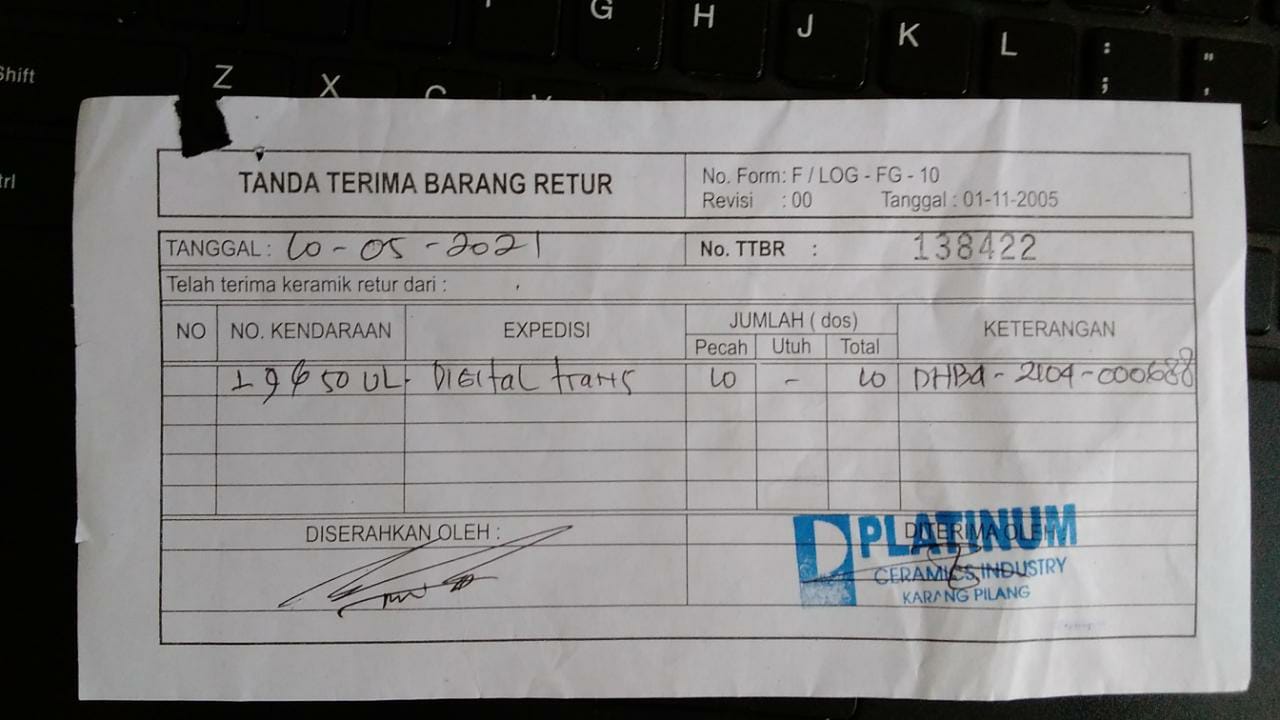 G H J K L : ;
" '
Shift Z X
TANDA TERIMA BARANG RETUR
No. Form: F / LOG - FG - 10
Revisi : 00 Tanggal : 01-11-2005
TANGGAL : 10-05-2021 No. TTBR : 138422
Telah terima keramik retur dari :
NO NO. KENDARAAN EXPEDISI JUMLAH ( dos) KETERANGAN
Pecah Utuh Total
50 UL. Digital trans 10 - 10 DHBA - 2104-000688
DISERAHKAN OLEH : DITERIMA OLEH
PLATINUM
CERAMICS INDUSTRY
KARANG PILANG